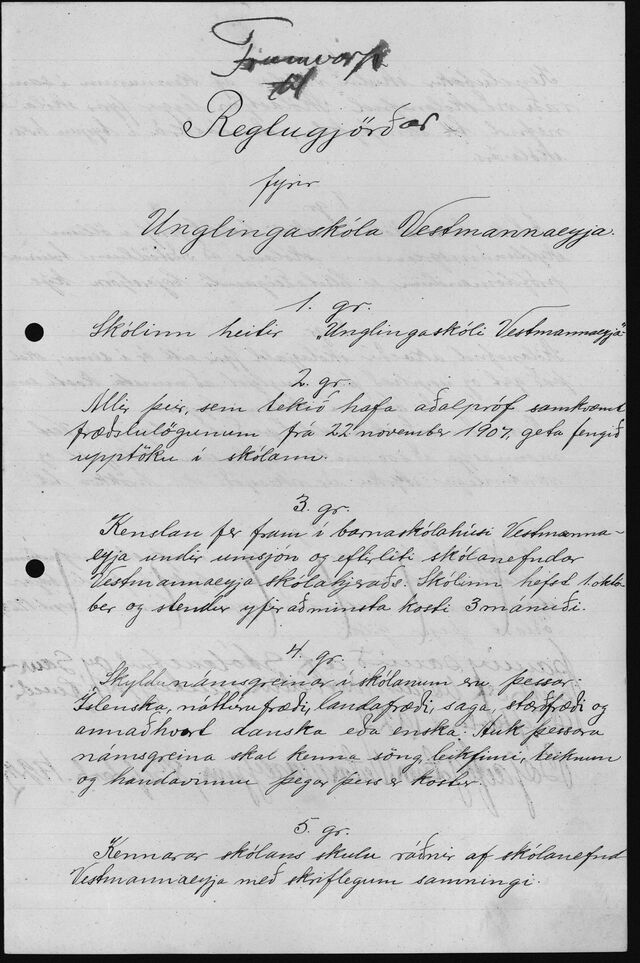 Frumvarp
til
Reglugjörðar
fyrir
Unglingaskóla Vestmannaeyja.
1. gr.
Skólinn heitir „Unglingaskóli Vestmannaeyja“
2. gr.
Allir þeir, sem tekið hafa aðalpróf samkvæmt
fræðslulögunum frá 22 november 1907, geta fengið
upptöku í skólann.
3. gr.
Kenslan fer fram í barnaskólahúsi Vestmanna-
eyja undir umsjón og eftirliti skólanefndar
Vestmannaeyja skólahjeraðs. Skólinn hefst 1. októ-
ber og stendur yfir að minsta kosti 3 mánuði.
4. gr.
Skyldunámsgreinar í skólanum eru þessar:
Íslenska, náttúrufræði, landafræði, saga, stærðfræði og
annaðhvort danska eða enska. Auk þessara
námsgreina skal kenna söng, leikfimi, teiknun
og handavinnu þegar þess er kostur.
5. gr.
Kennarar skólans skulu ráðnir af skólanefnd
Vestmannaeyja með skriflegum samningi.